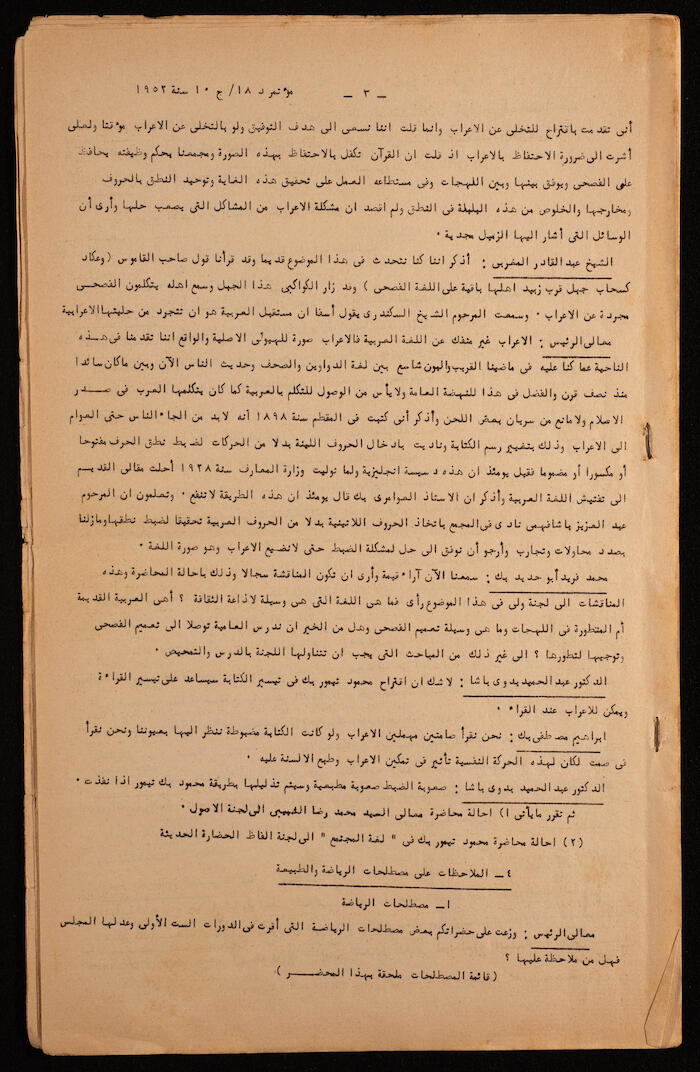 ــ ٣ ــ مؤتمر د ١٨/ ج ١٠ سنة ١٩٥٢
أنى تقدمت باقتراح للتخلى عن الاعراب وانما قلت اننا نسعى الى هدف التوفيق ولو بالتخلى عن الاعراب مؤقتا ولعلى
أشرت الى ضرورة الاحتفاظ بالاعراب اذ قلت ان القرآن تكفل بالاحتفاظ بهذه الصورة ومجمعنا بحكم وظيفته يحافظ
على الفصحى ويوفق بينها وبين اللهجات وفى مستطاعه العمل على تحقيق هذه الغاية وتوحيد النطق بالحروف
ومخارجها والخلوص من هذه البلبلة فى النطق ولم اقصد ان مشكلة الاعراب من المشاكل التى يصعب حلها وأرى أن
الوسائل التى أشار اليها الزميل مجدية ٠
الشيخ عبد القادر المغربى : أذكر اننا كنا نتحدث فى هذا الموضوع قديما وقد قرأنا قول صاحب القاموس ( وعكاد
كسحاب جبل قرب زبيد اهلها باقية على اللغة الفصحى ) وقد زار الكواكبى هذا الجبل وسمع اهله يتكلمون الفصحى
مجردة عن الاعراب ٠ وسمعت المرحوم الشيخ السكندرى يقول أسفا ان مستقبل العربية هو ان تتجرد من حليتها الاعرابية
معالى الرئيس : الاعراب غير منفك عن اللغة العربية فالاعراب صورة للهيولى الاصلية والواقع اننا تقدمنا فى هذه
الناحية عما كنا عليه فى ماضينا القريب والبون شاسع بين لغة الدواوين والصحف وحديث الناس الآن وبين ماكان سائدا
منذ نصف قرن والفضل فى هذا للنهضة العامة ولا يأس من الوصول للتكلم بالعربية كما كان يتكلمها العرب فى صدر
الاسلام ولا مانع من سريان بعض اللحن وأذكر أنى كتبت فى المقطم سنة ١٨٩٨ أنه لابد من الجاء الناس حتى العوام
الى الاعراب وذلك بتغيير رسم الكتابة وناديت بادخال الحروف اللينة بدلا من الحركات لضبط نطق الحرف مفتوحا
أو مكسورا أو مضموما فقيل يومئذ ان هذه دسيسة انجليزية ولما توليت وزارة المعارف سنة ١٩٢٨ أحلت مقالى القديم
الى تفتيش اللغة العربية وأذكر ان الاستاذ العوامرى بك قال يومئذ ان هذه الطريقة لاتنفع ٠ وتعلمون ان المرحوم
عبد العزيز باشا فهمى نادى فى المجمع باتخاذ الحروف اللاتينية بدلا من الحروف العربية تحقيقا لضبط نطقها ومازلنا
بصدد محاولات وتجارب وأرجو أن نوفق الى حل لمشكلة الضبط حتى لا نضيع الاعراب وهو صورة اللغة ٠
محمد فريد أبو حديد بك : سمعنا الآن آراء قيمة وأرى ان تكون المناقشة سجالا وذلك باحالة المحاضرة وهذه
المناقشات الى لجنة ولى فى هذا الموضوع رأى فما هى اللغة التى هى وسيلة لاذاعة الثقافة ؟ أهى العربية القديمة
أم المتطورة فى اللهجات وما هى وسيلة تعميم الفصحى وهل من الخير ان ندرس العامية توصلا الى تعميم الفصحى
وتوجيها لتطورها ؟ الى غير ذلك من المباحث التى يجب ان تتناولها اللجنة بالدرس والتمحيص ٠
الدكتور عبد الحميد بدوى باشا : لاشك ان اقتراح محمود تيمور بك فى تيسير الكتابة سيساعد على تيسير القراءة
ويمكن للاعراب عند القراء ٠
ابراهيم مصطفى بك : نحن نقرأ صامتين مهملين الاعراب ولو كانت الكتابة مضبوطة ننظر اليها بعيوننا ونحن نقرأ
فى صمت لكان لهذه الحركة النفسية تأثير فى تمكين الاعراب وطبع الالسنة عليه ٠
الدكتور عبد الحميد بدوى باشا : صعوبة الضبط صعوبة مطبعية وسيتم تذليلها بطريقة محمود بك تيمور اذا نفذت ٠
ثم تقرر مايأتى ١) احالة محاضرة معالى السيد محمد رضا الشبيبى الى لجنة الاصول ٠
(٢) احالة محاضرة محمود تيمور بك فى " لغة المجتمع " الى لجنة الفاظ الحضارة الحديثة
٤ــ الملاحظات على مصطلحات الرياضة والطبيعة
١ــ مصطلحات الرياضة
معالى الرئيس : وزعت على حضراتكم بعض مصطلحات الرياضة التى أقرت فى الدورات الست الأولى وعدلها المجلس
فهل من ملاحظة عليها ؟
( قائمة المصطلحات ملحقة بهذا المحضر )٠